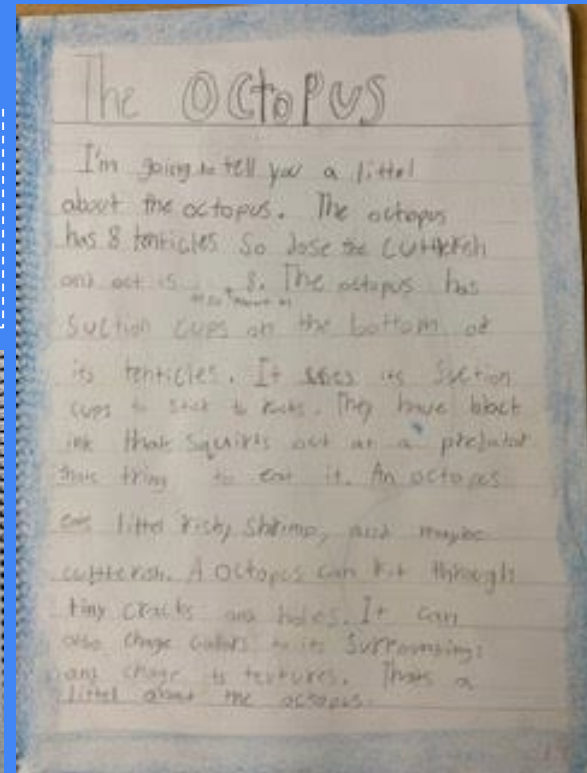 The Octopus
I'm going to tell you a littel
about the octopus. The octopus
has 8 tenticles So dose the cuttlefish
and oct is 8. The octopus has
Suction cups on the bottom of
its tenticles. It uses its Suction
cups to stick to rocks. They have black
ink that squirts out at a predator
thats tring to eat it. An octopus
eats littel fish, Shrimp, and maybe
cuttlefish. A Octopus can fit through
tiny cracks and holes. It can
also chage colors to its Surroundings
and chage its textures. Thats a
littel about the octopus.